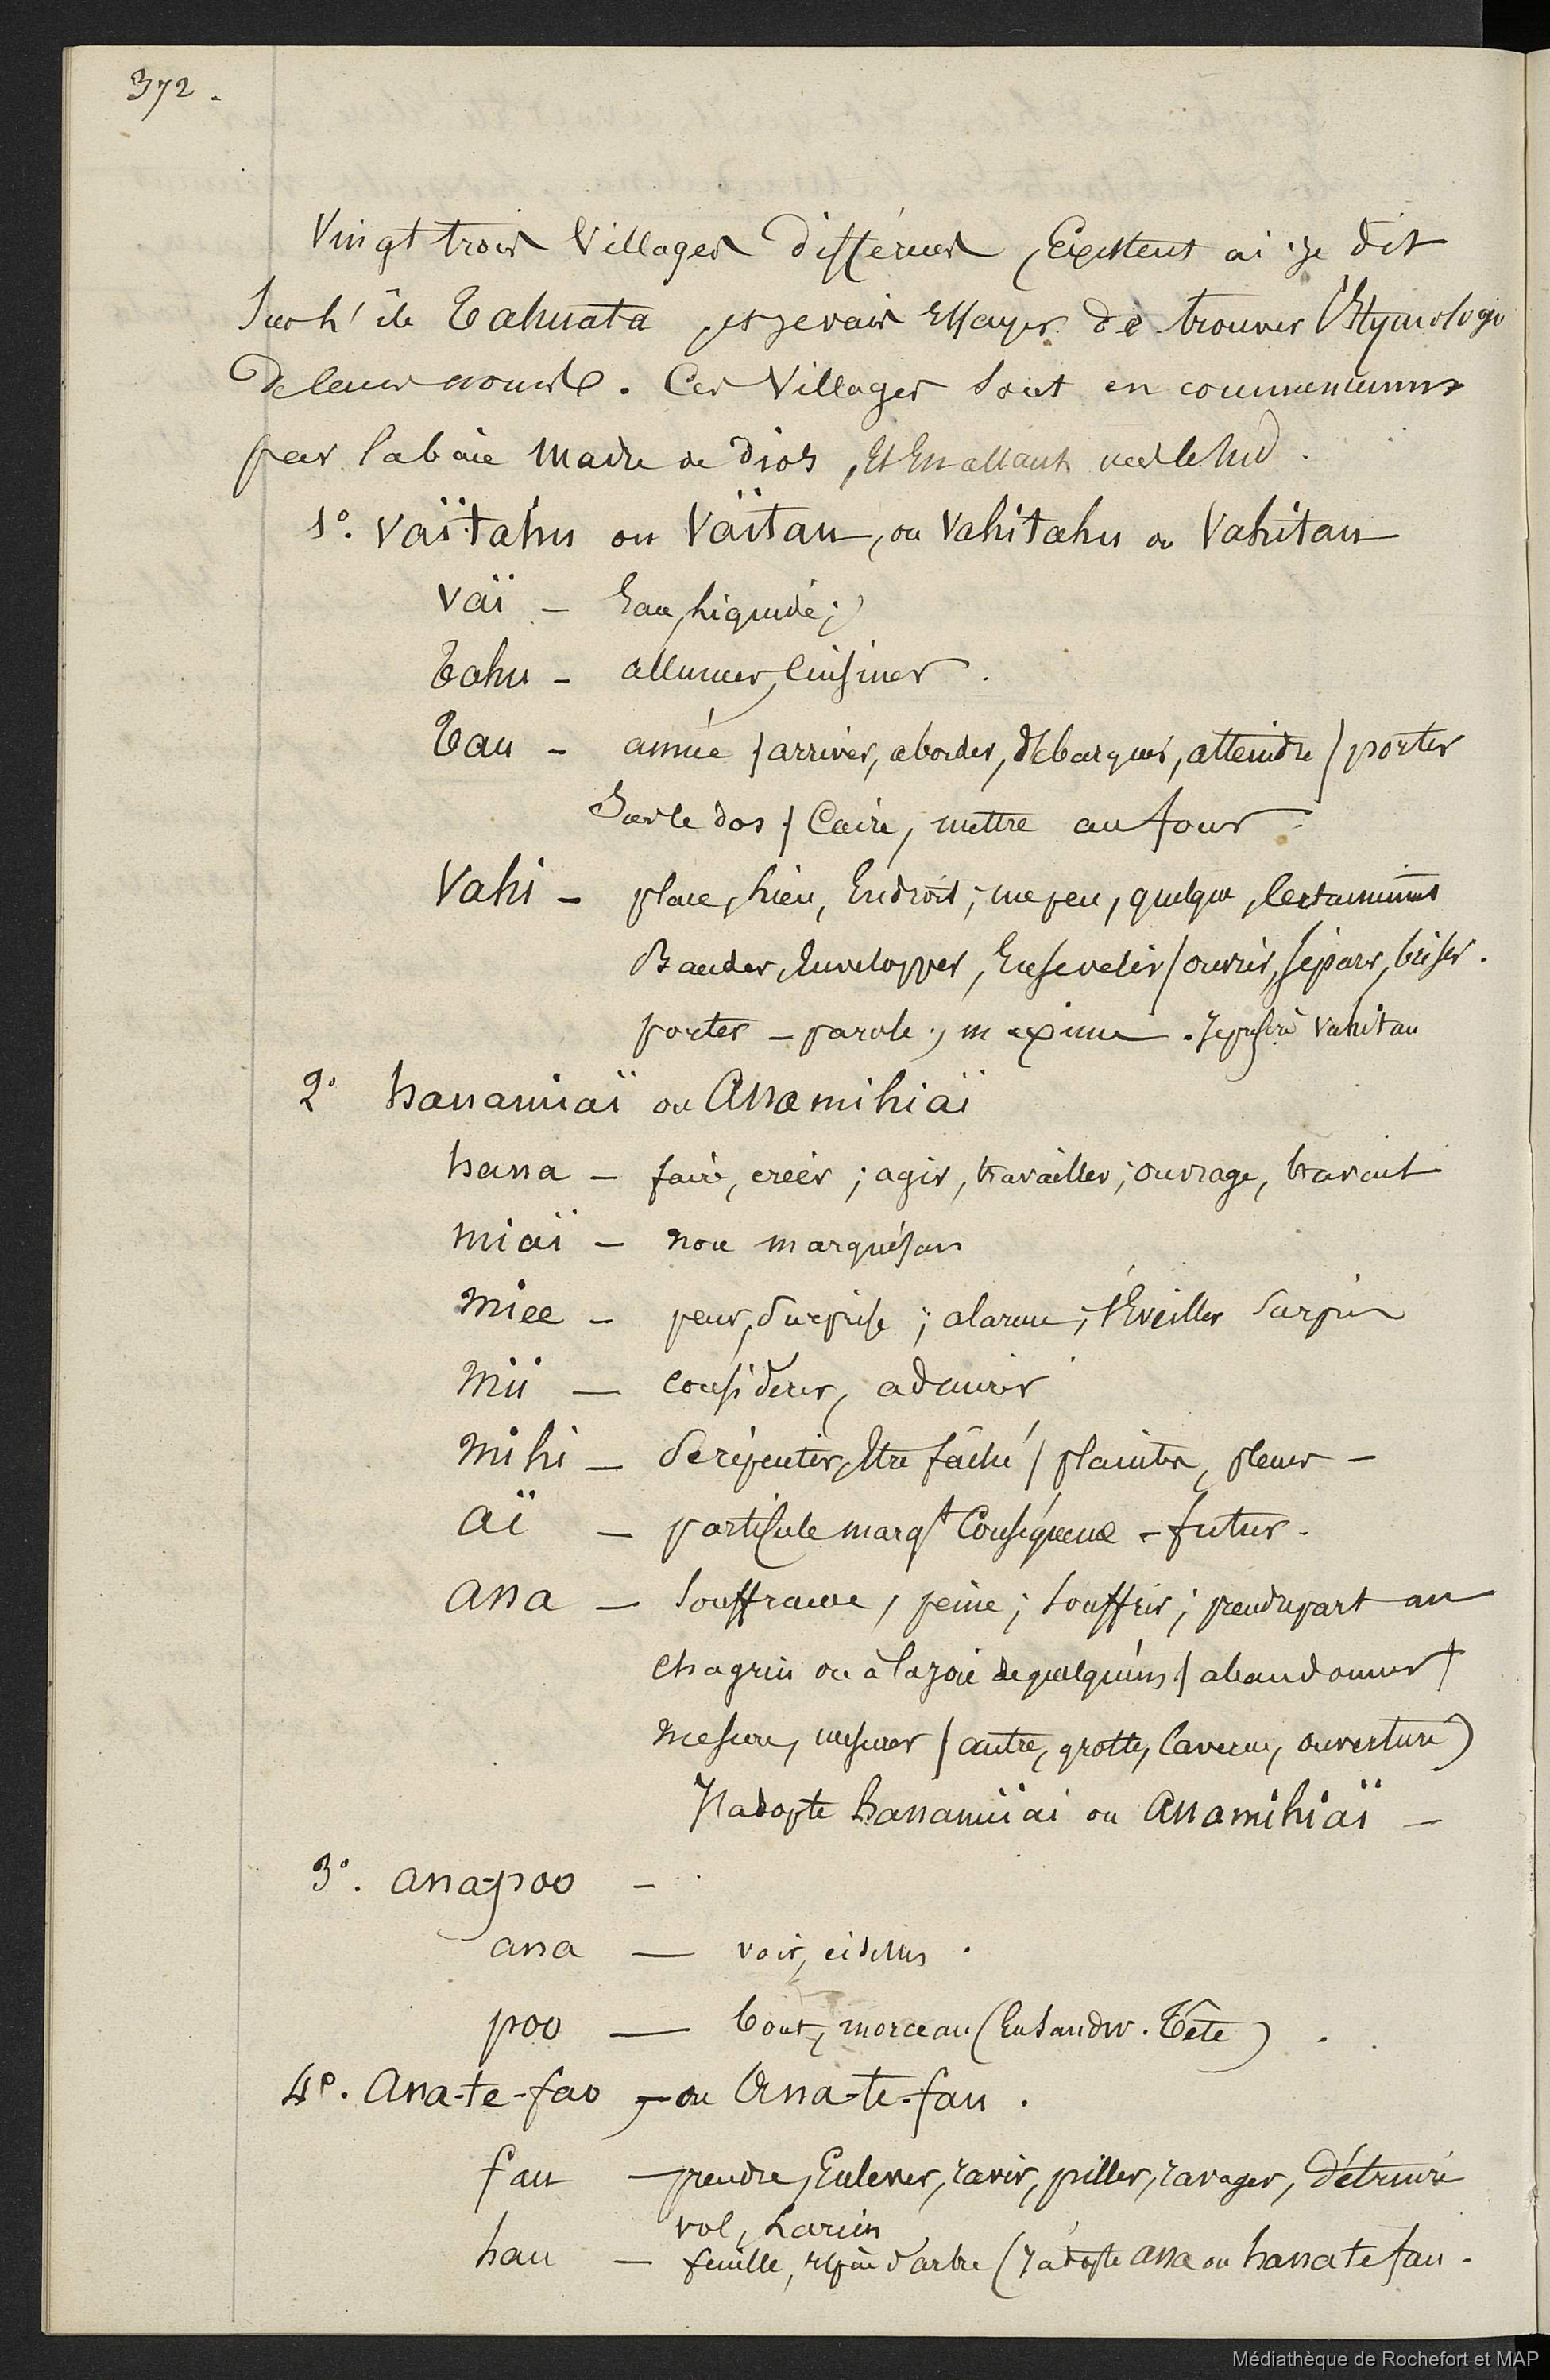 372.
Vingt trois Villages différens, Existent ai-je dit
Sur l'île Tahuata, et je vais Essayer de trouver l'Etymologie
de leurs noms. Ces Villages sont en commençant
par la baie Madre de Dios, Et En allant vers le Sud.
1°. Vaï-tahu ou Vaïtau, ou Vahitahu ou Vahitau
Vaï - Eau, liquide;
Tahu - allumer, Cuisiner.
Tau - année / arriver, aborder, débarquer, atteindre / porter
Sur le dos / Cuire, mettre au four.
Vahi - place, lieu, Endroit; un peu, quelque, Certainement
Bander, Envelopper, Ensevelir / ouvrir, séparer, briser.
porter - parole, maxime. Je préfère Vahitau
2° hanamiaï ou Anamihiaï
hana - faire, créer; agir, travailler; ouvrage, travail
miaï - non marquésan
miee - peur, Surprise; alarme; s'Eveiller Surpris
mii - considérer, admirer
mihi - Se répentir, Etre fâché / plainte, pleur -
aï - particule marqt Conséquence - futur.
ana - Souffrance, peine; Souffrir; prendre part au
chagrin ou à la joie de quelqu'un / abandonner /
mesure, mesurer / antre, grotte, Caverne, ouverture)
J'adopte hanamiiai ou Anamihiaï -
3°. ana-poo -
ana - voir, ci dessus.
poo - bout, morceau (En Sandw. Tête).
4°. Ana-te-fao, - ou Ana-te-fau.
fau - prendre, Enlever, ravir, piller, ravager, détruire
vol, Larcin
hau - feuille, espèce d'arbre (J'adopte ana ou hana te fau.
Médiathèque de Rochefort et MAP